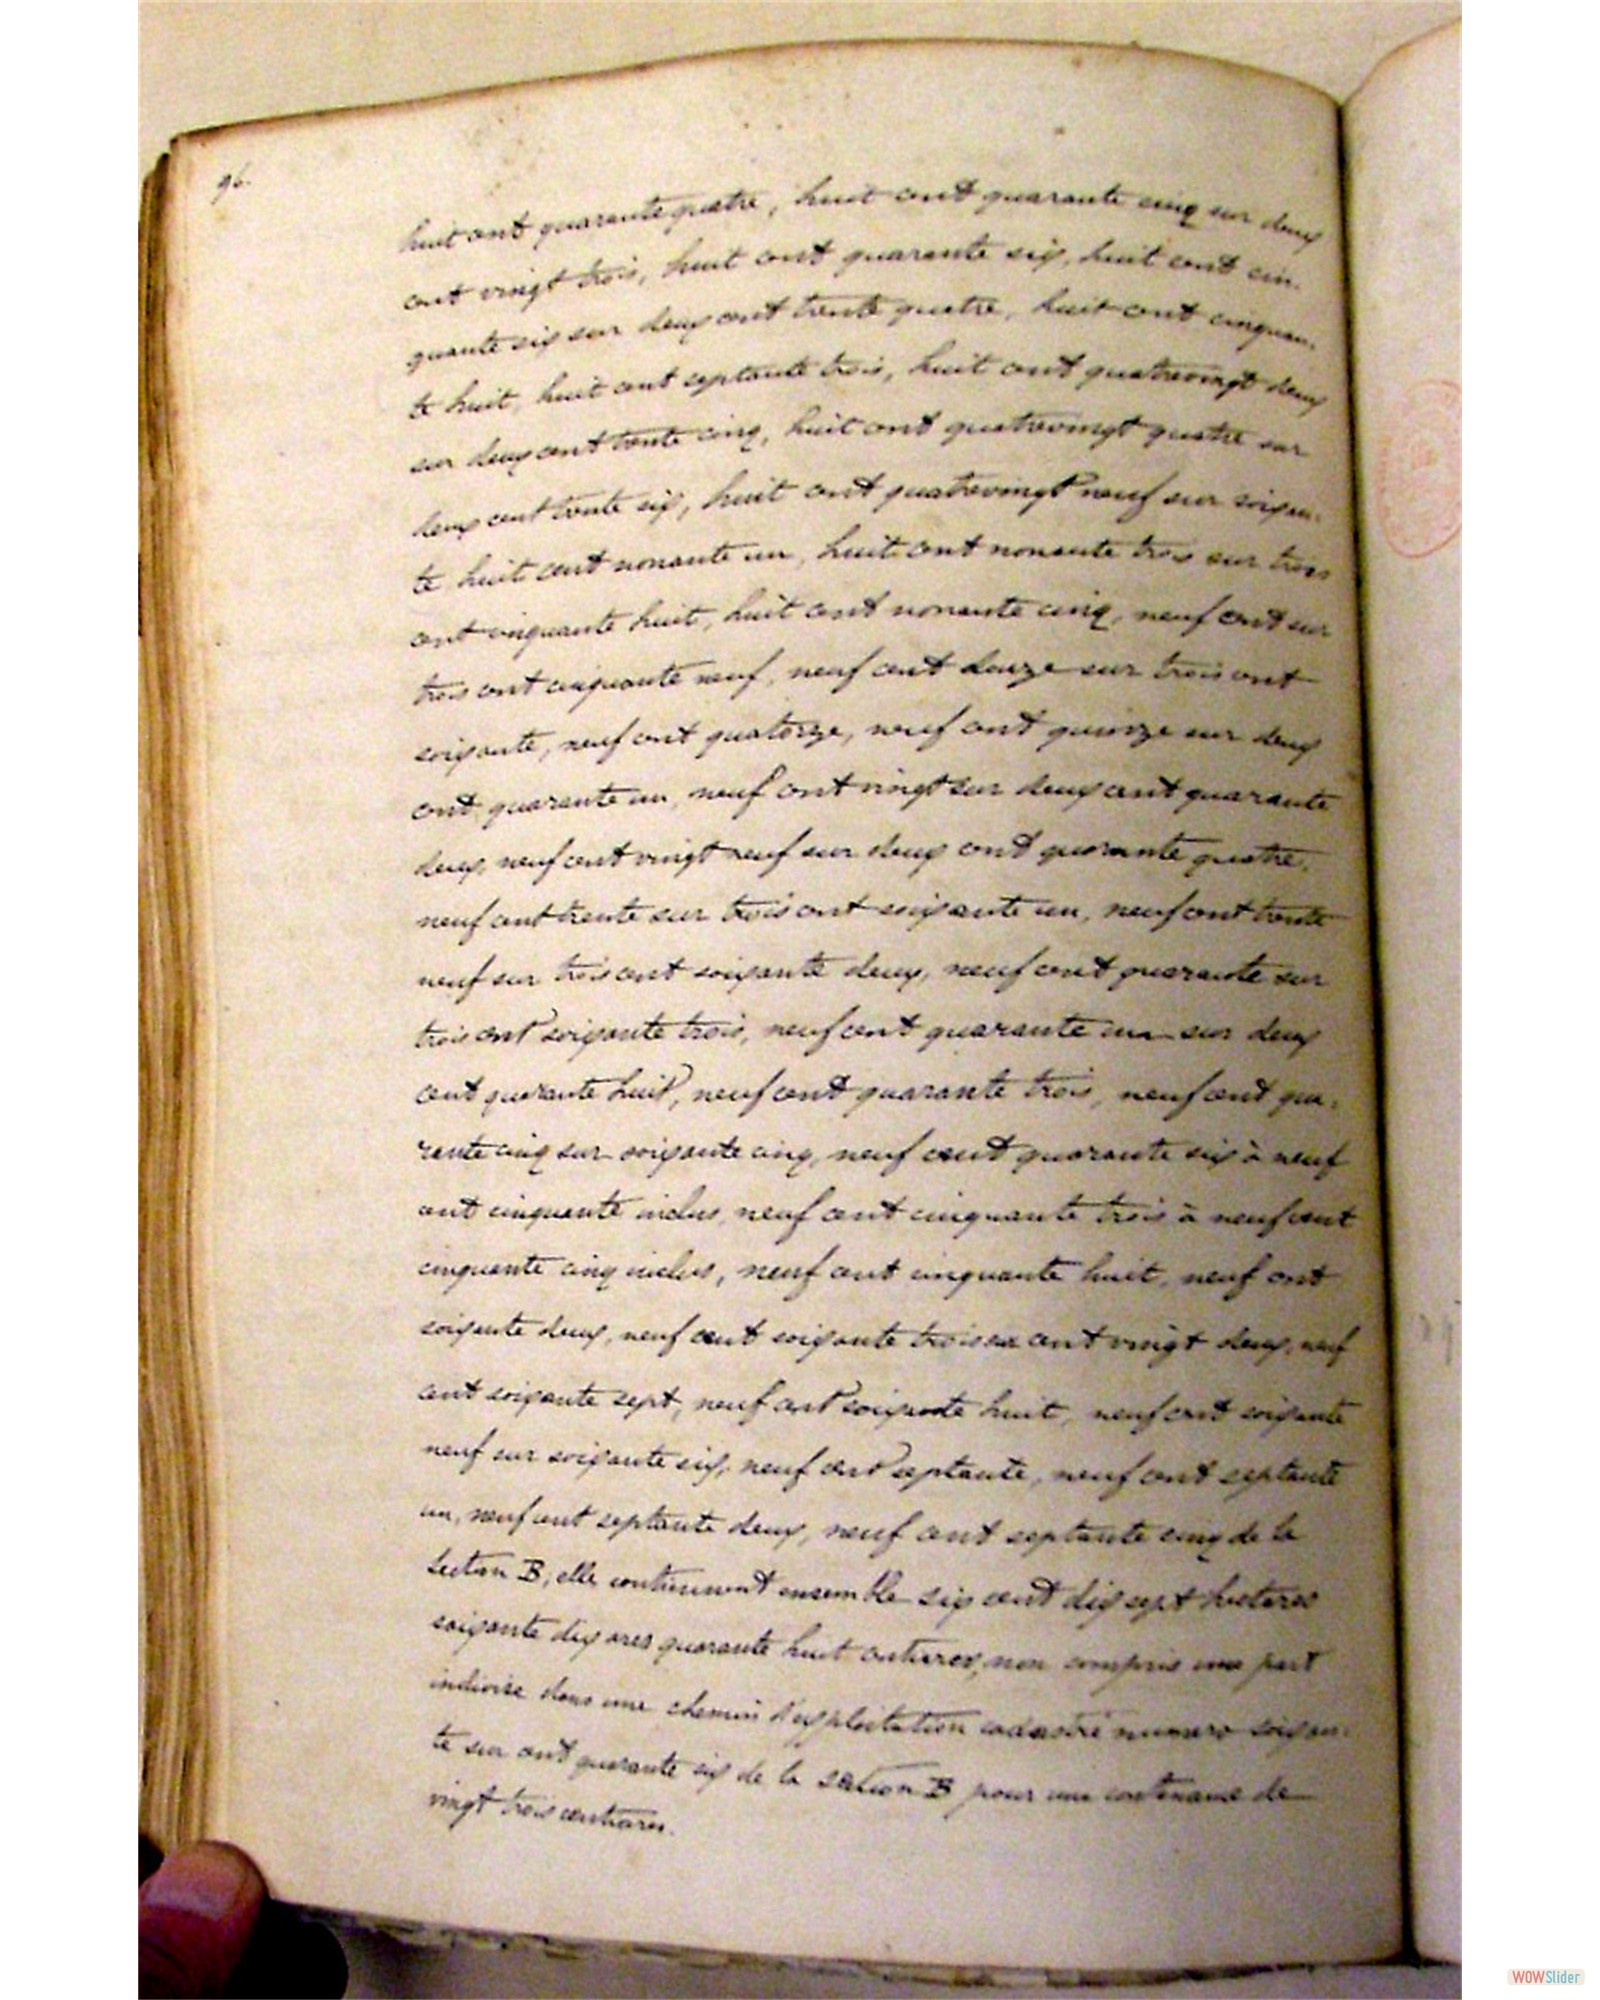 96.
huit cent quarante quatre, huit cent quarante cinq sur deux
cent vingt trois, huit cent quarante six, huit cent cin-
quante six sur deux cent trente quatre, huit cent cinquan-
te huit, huit cent septante trois, huit cent quatrevingt deux
sur deux cent trente cinq, huit cent quatrevingt quatre sur
deux cent trente six, huit cent quatrevingt neuf sur soixan-
te huit cent nonante un, huit cent nonante trois sur trois
cent cinquante huit, huit cent nonante cinq, neuf cent sur
trois cent cinquante neuf, neuf cent douze sur trois cent
soixante, neuf cent quatorze, neuf cent quinze sur deux
cent quarante un, neuf cent vingt sur deux cent quarante
deux, neuf cent vingt neuf sur deux cent quarante quatre,
neuf cent trente sur trois cent soixante un, neuf cent trente
neuf sur trois cent soixante deux, neuf cent quarante sur
trois cent soixante trois, neuf cent quarante un sur deux
cent quarante huit, neuf cent quarante trois, neuf cent qua-
rante cinq sur soixante cinq, neuf cent quarante six à neuf
cent cinquante inclus, neuf cent cinquante trois à neuf cent
cinquante cinq inclus, neuf cent cinquante huit, neuf cent
soixante deux, neuf cent soixante trois sur cent vingt deux, neuf
cent soixante sept, neuf cent soixante huit, neuf cent soixante
neuf sur soixante six, neuf cent septante, neuf cent septante
un, neuf cent septante deux, neuf cent septante cinq de la
Section B, elle contiennent ensemble six cent dix sept hectares
soixante dix ares quarante huit centiares, non compris une part
indivise dans une chemin d'exploitation cadastré numéro soixan-
te sur cent quarante six de la section B pour une contenance de
vingt trois centiares.
WOWSlider